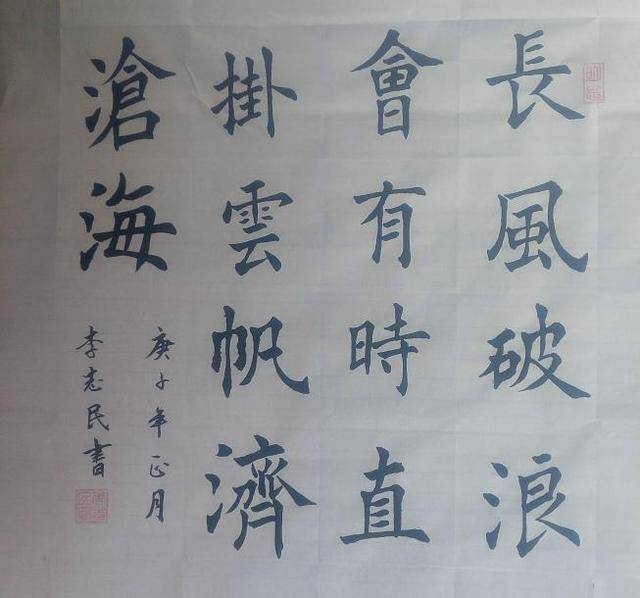 長風破浪
會有時直
掛雲帆濟
滄海
庚子年正月
李志民書